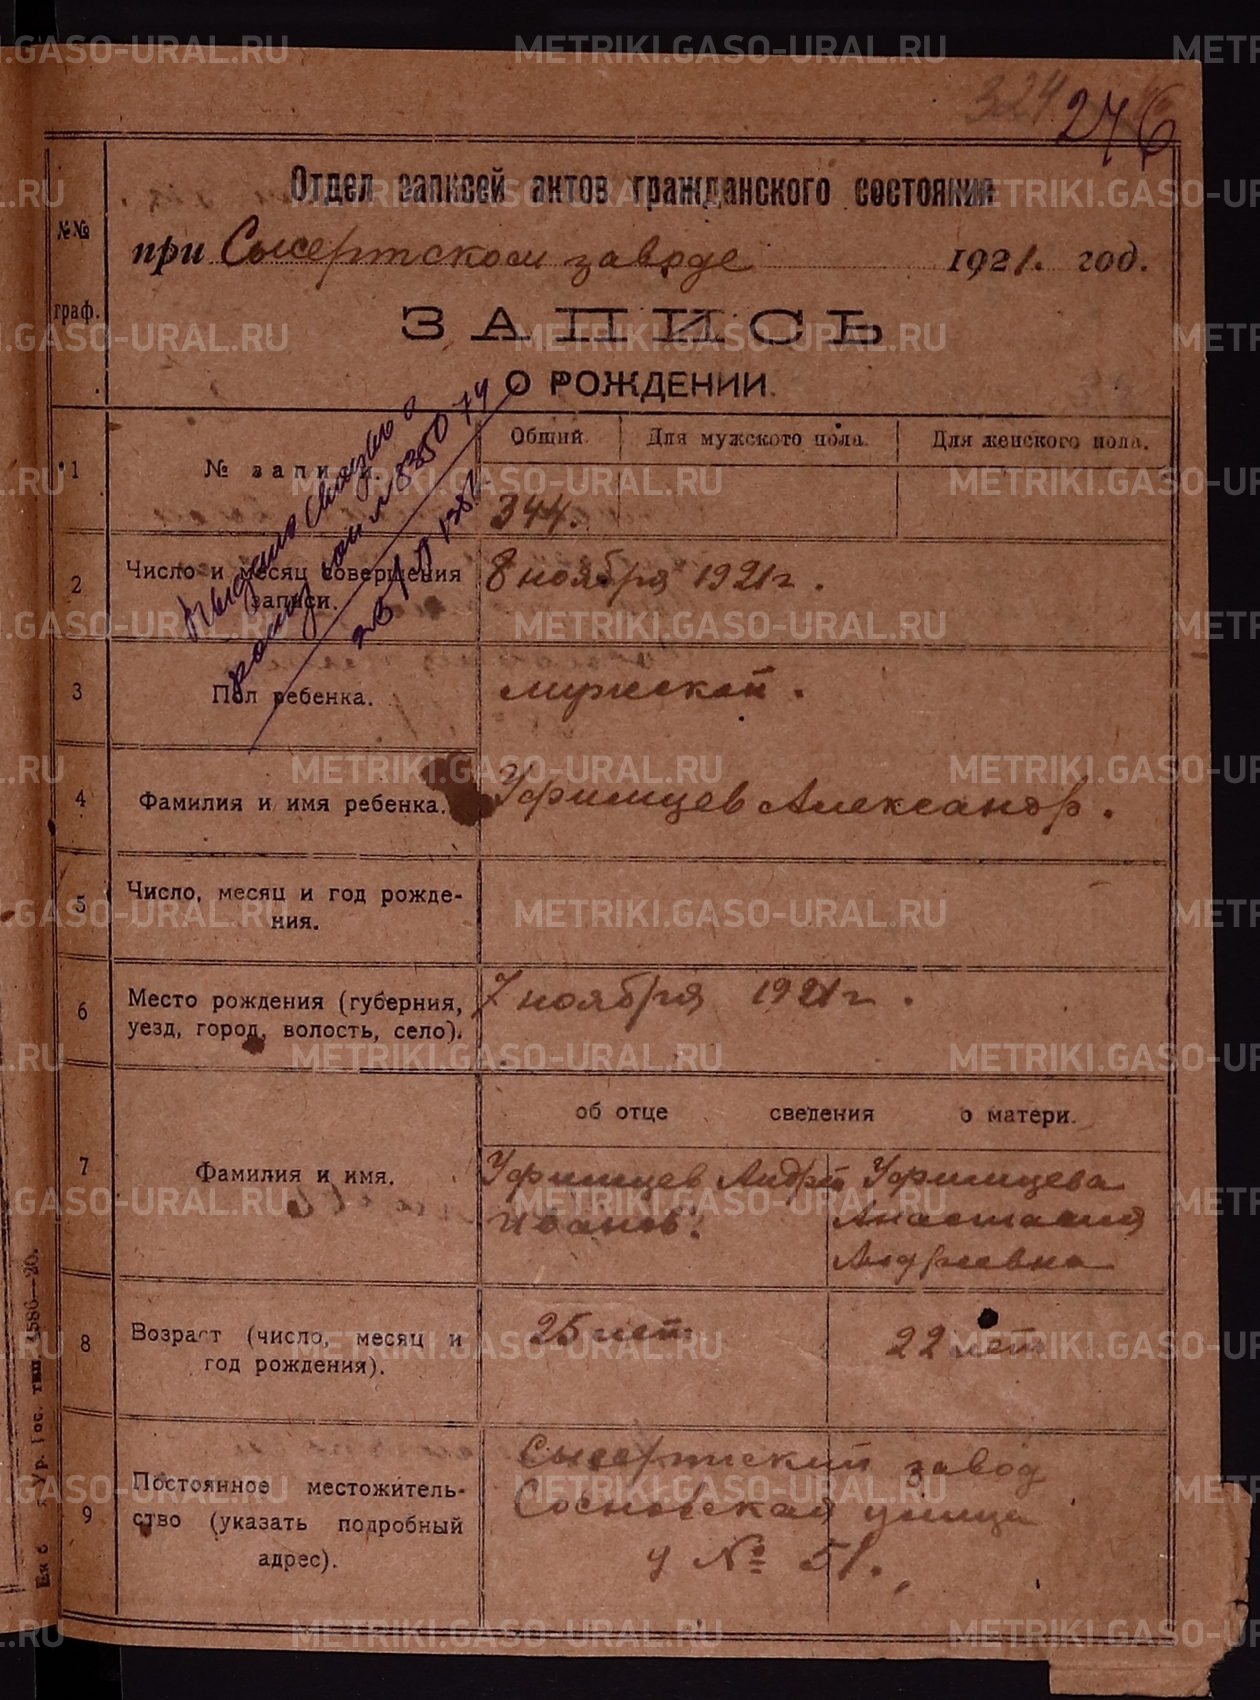 METRIKI.GASO-URAL.RU
324
276
Отдел записей актов гражданского состояния
№№ граф.
при Сысертском заводе 1921. год.
ЗАПИСЬ
О РОЖДЕНИИ.
1
№ записи.
Общий.
Для мужского пола.
Для женского пола.
344.
2
Число и месяц совершения
записи.
8 ноября 1921 г.
3
Пол ребенка.
мужской.
4
Фамилия и имя ребенка.
Уфимцев Александр.
5
Число, месяц и год рожде-
ния.
6
Место рождения (губерния,
уезд, город, волость, село).
7 ноября 1921 г.
7
Фамилия и имя.
об отце сведения о матери.
Уфимцев Андрей
Иванов.
Уфимцева
Анастасия
Андреевна
8
Возраст (число, месяц и
год рождения).
25 лет
22 лет
9
Постоянное местожитель-
ство (указать подробный
адрес).
Сысертский завод
Сосновская улица
№ 51.
Ур. Гос. тип. 1586—20.